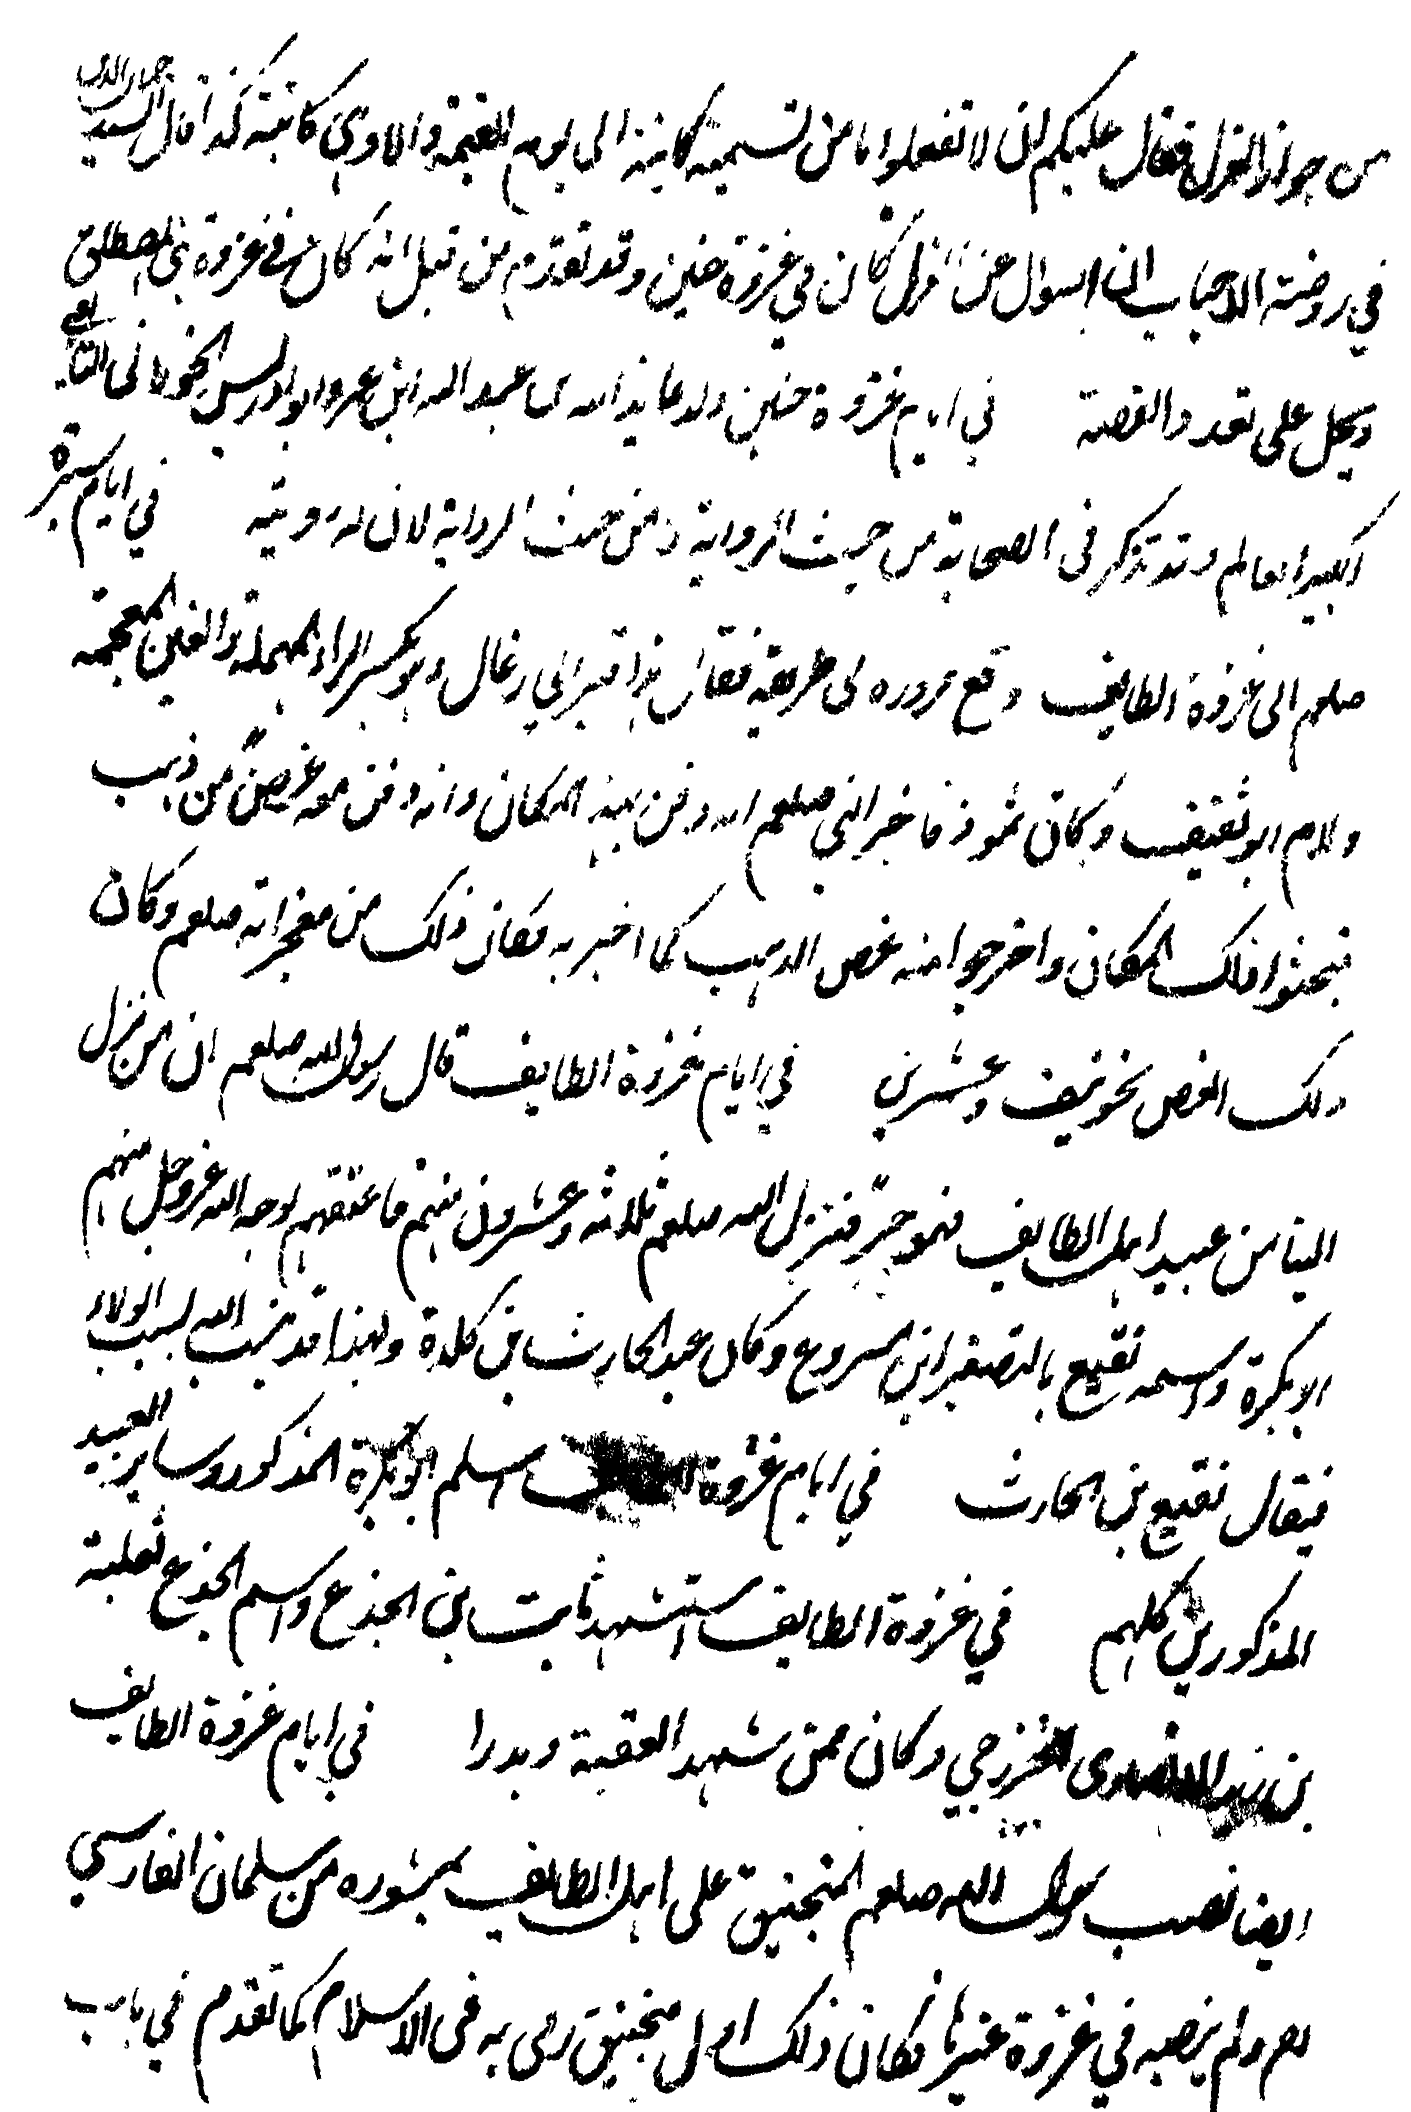 من جواز العزل فقال عليكم ان لا تفعلوا ما من نسمة كاينة الى يوم القيمة والا وهي كاينة كذا قال السيد جمال الدين
في روضة الاحباب ان السوال عن العزل كان في غزوة حنين وقد تقدم من قبل انه كان في غزوة بني المصطلق
ويحمل على تعدد القصة في ايام غزوة حنين ولد عايذ الله بن عبد الله ابن عمرو ابو ادريس الخولاني التابعي
الكبير العالم وقد تذكر في الصحابة من حيث الرواية لان له روية في ايام سيره
صلعم الى غزوة الطايف وقع مروره في طريقه فقال هذا قبر ابي رغال وهو بكسر الراء المهملة والغين المعجمة
ولام ابو ثقيف وكان ثمود فاخبر النبي صلعم انه دفن بهذا المكان وانه دفن معه غصن من ذهب
فبحثوا ذلك المكان واخرجوا منه غصن الذهب كما اخبر به فكان ذلك من معجزاته صلعم وكان
ذلك الغصن نحو نيف وعشرين في ايام غزوة الطايف قال رسول الله صلعم ان من نزل
الينا من عبيد اهل الطايف فهو حر فنزل اليه صلعم ثلاثة وعشرون منهم فاعتقهم لوجه الله عز وجل منهم
ابو بكرة واسمه نقيع بالتصغير ابن مسروع وكان عبد الحارث بن كلدة ولهذا قد ينسب اليه بسبب الولاء
فيقال نقيع بن الحارث في ايام غزوة الطايف اسلم ابو بكرة المذكور وساير العبيد
المذكورين كلهم في غزوة الطايف استشهد ثابت بن الجذع واسم الجذع ثعلبة
بن زيد الانصاري الخزرجي وكان ممن شهد العقبة وبدرا في ايام غزوة الطايف
ايضا نصب رسول الله صلعم المنجنيق على اهل الطايف بمشوره من سلمان الفارسي
رض ولم ينصبه في غزوة غيرها فكان ذلك اول منجنيق رمى به في الاسلام كما تقدم في باب